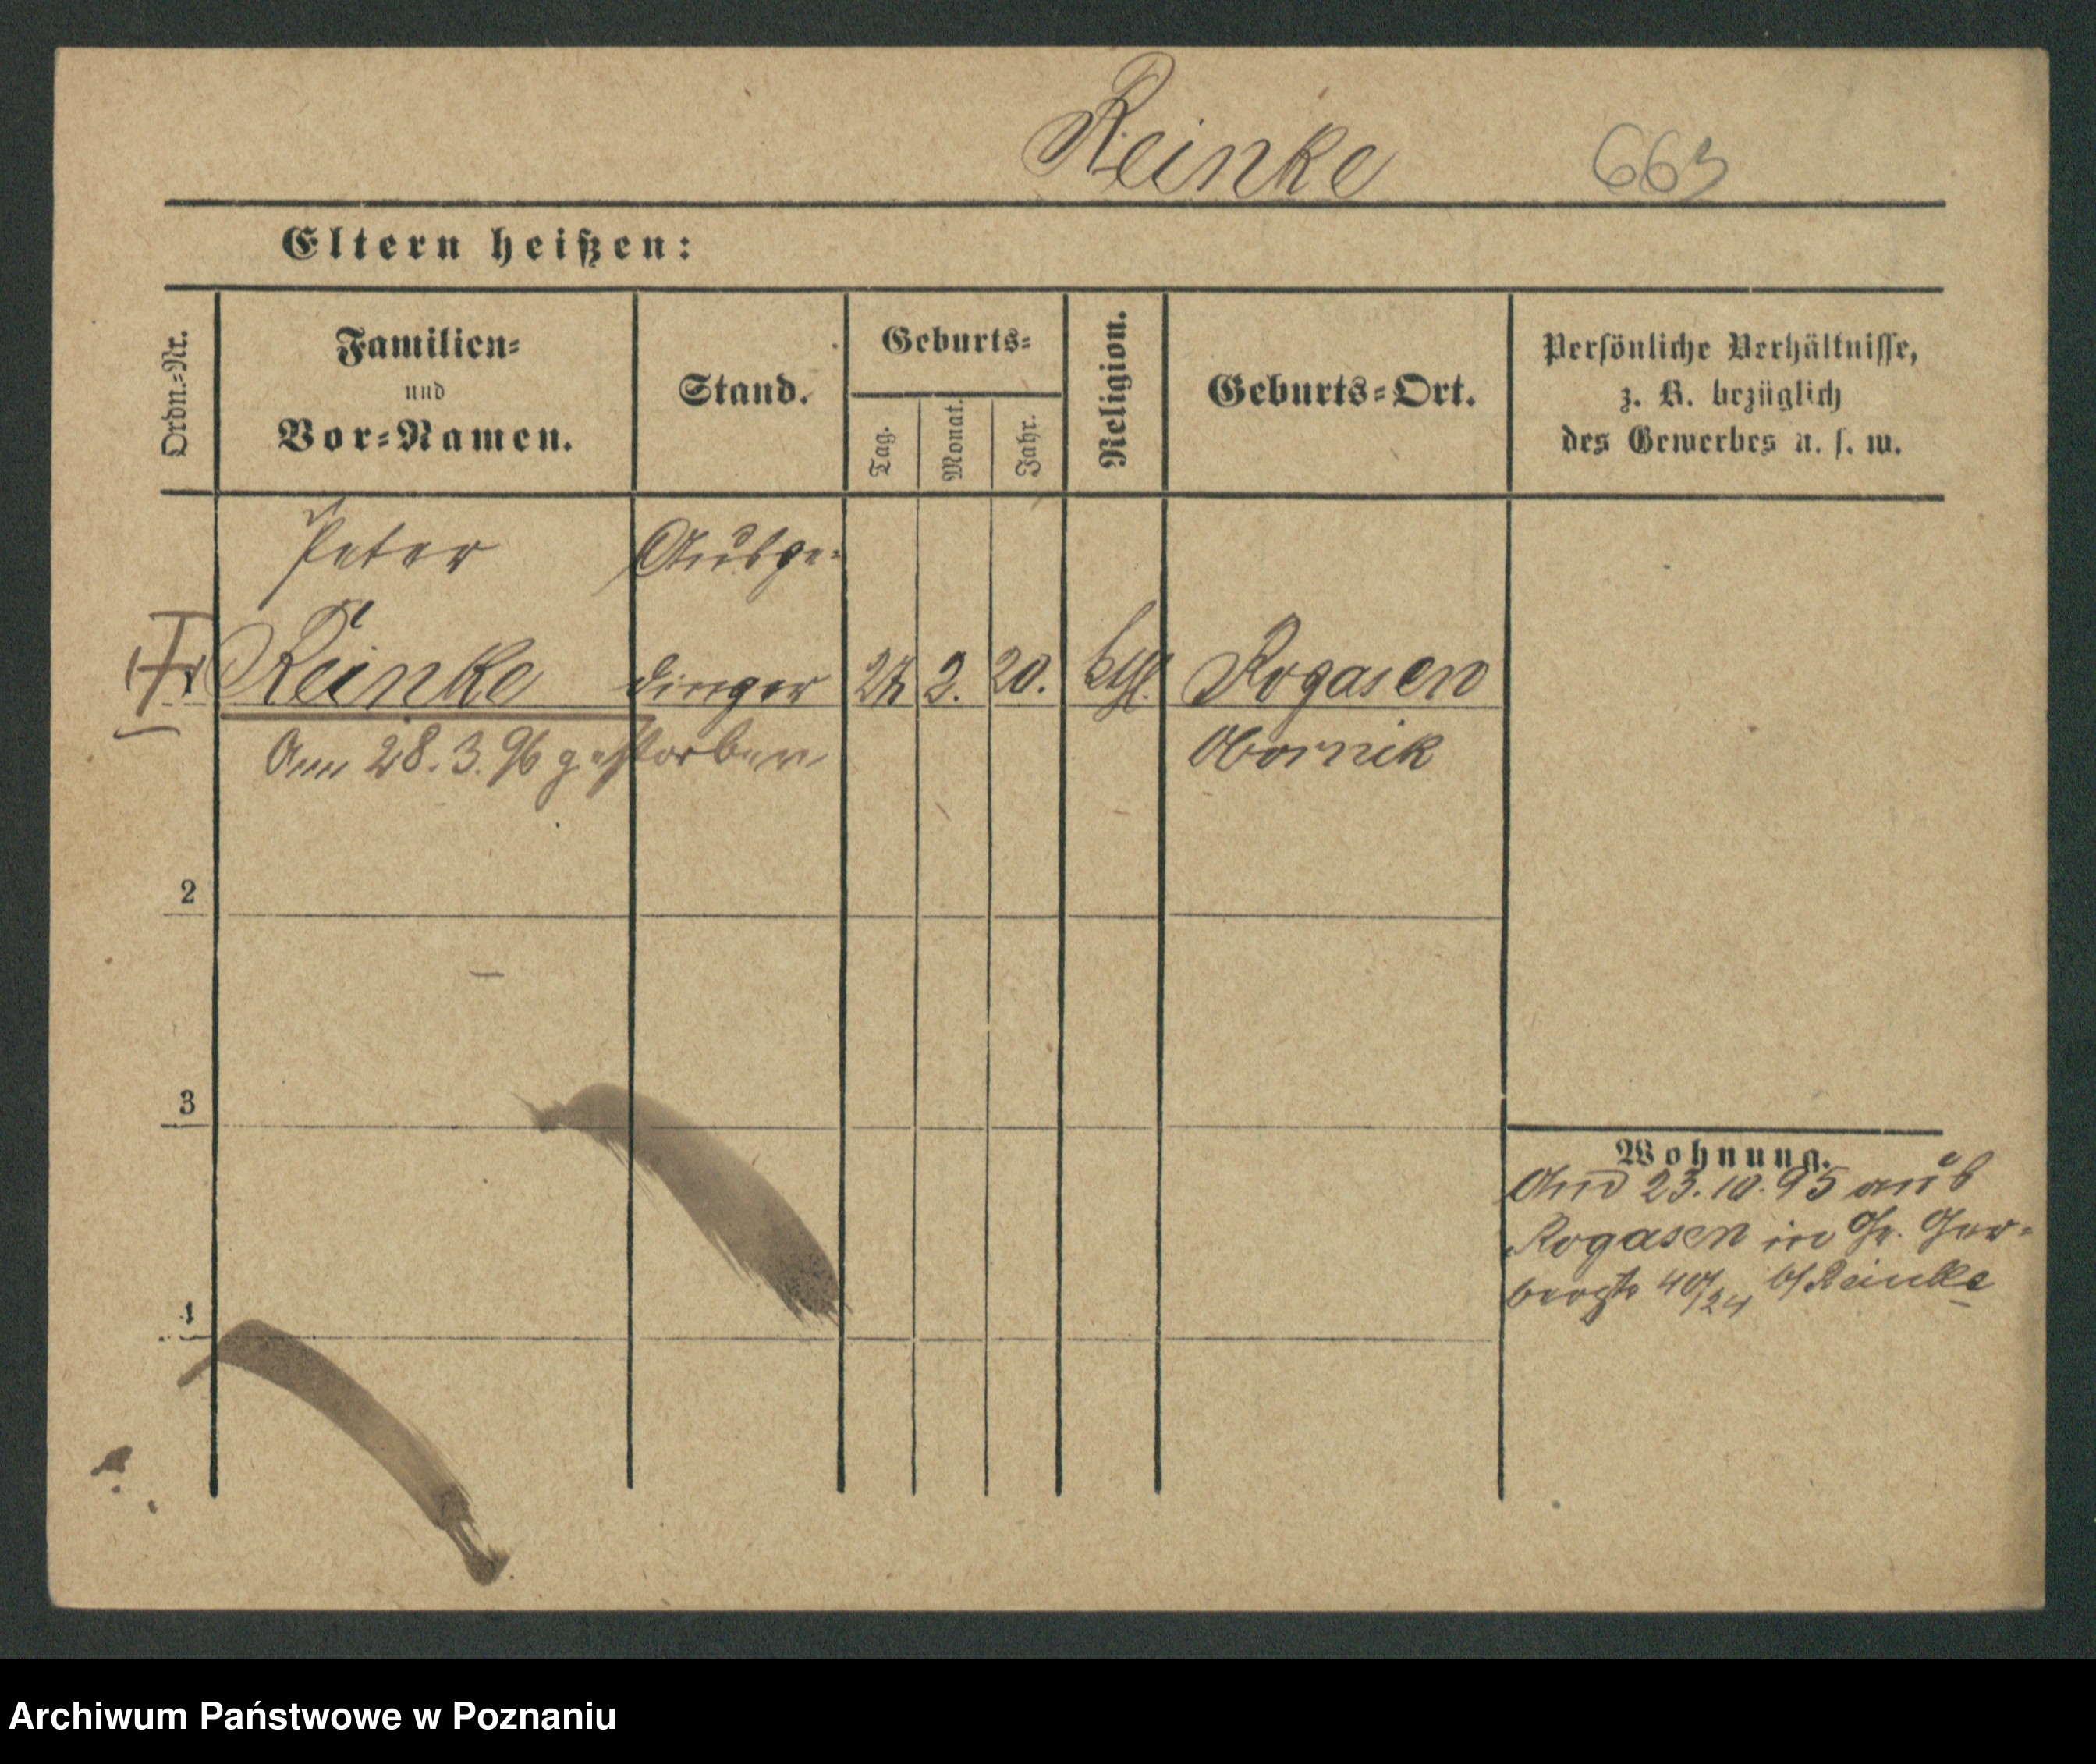 Reinke 663
Eltern heißen:
Ordn.-Nr.
Familien-
und
Vor-Namen.
Stand.
Geburts-
Tag.
Monat.
Jahr.
Religion.
Geburts-Ort.
Persönliche Verhältnisse,
z. B. bezüglich
des Gewerbes u. s. w.
Peter Ausge-
Reinke dinger 2. 20. Rogasen
Am 28. 3. 96 gestorben Obornik
2
3
4
Wohnung.
23. 10. 95 aus
Rogasen in Gr. Ger-
berstr 40/24 b/ Reinke
Archiwum Państwowe w Poznaniu